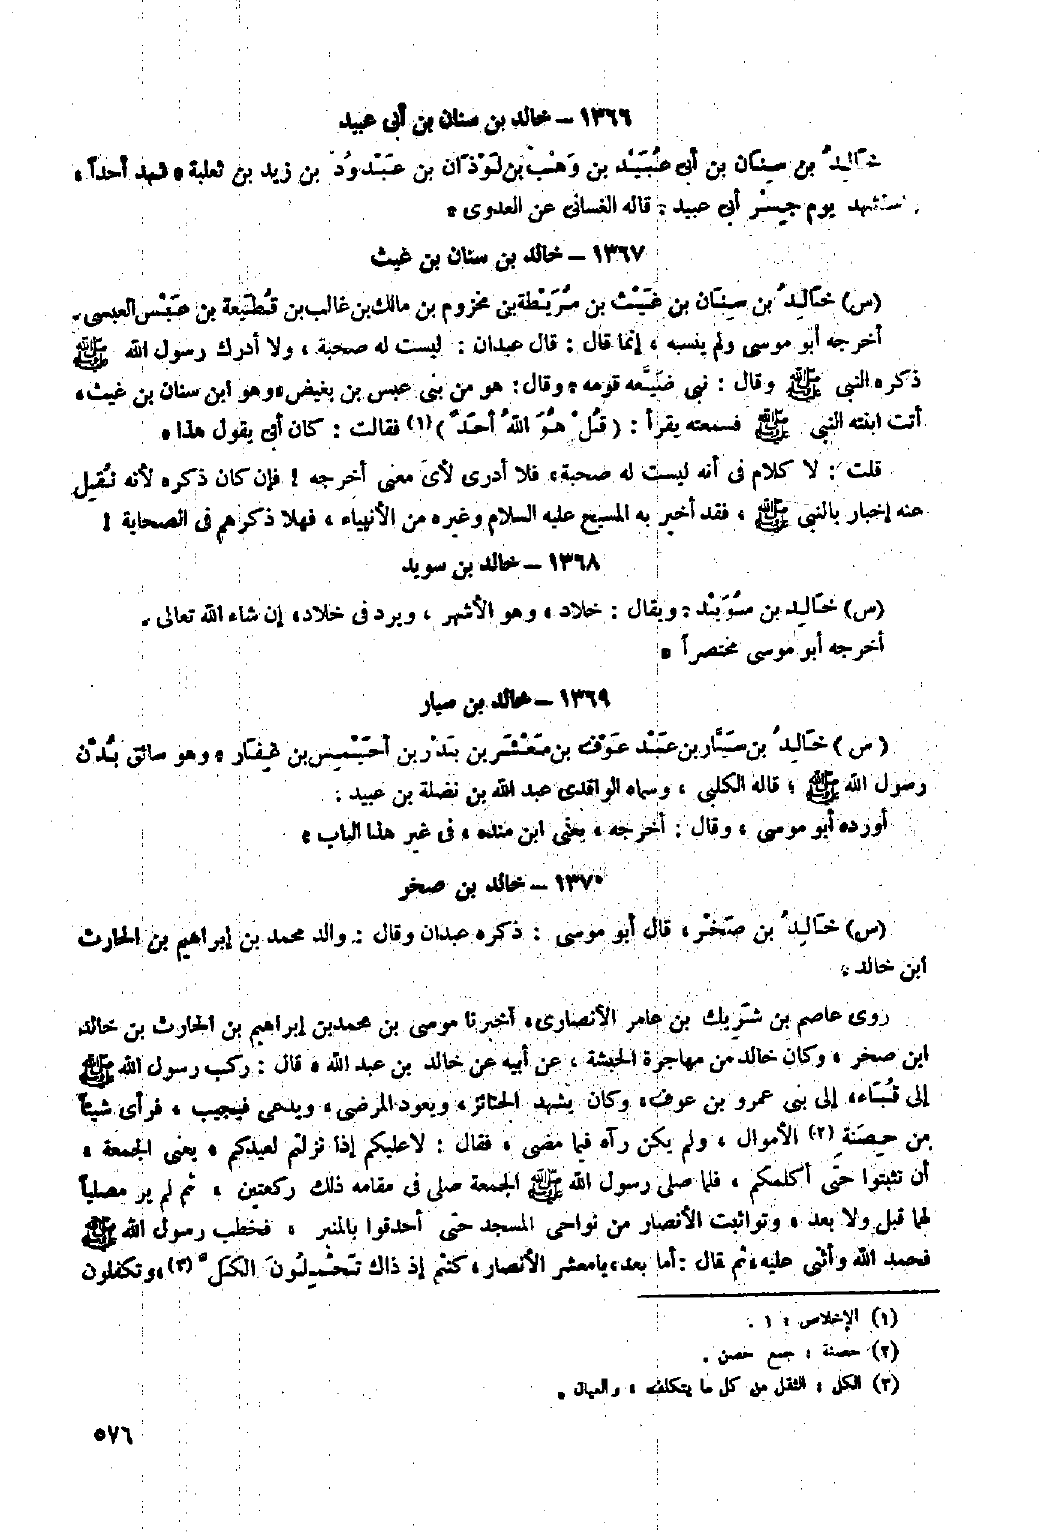 ١٣٦٦ – خالد بن سنان بن أبى عبيد
خَالِدُ بن سِنَان بن أبى عُبَيْد بن وَهْب بن لَوْذَان بن عَبْدوُد بن زيد بن ثعلبة . شهد أحداً ،
استشهد يوم جِسْر أبى عبيد . قاله الغسانى عن العدوى .
١٣٦٧ – خالد بن سنان بن غيث
(س) خَالِدُ بن سِنَان بن غَيْث بن مُرَيْطة بن مخزوم بن مالك بن غالب بن قُطَيعة بن عَبْس العبسى .
أخرجه أبو موسى ولم ينسبه ، إنما قال : قال عبدان : ليست له صحبة ، ولا أدرك رسول الله ﷺ
ذكره النبى ﷺ وقال : نبى ضَيَّعه قومه . وقال : هو من بنى عبس بن بغيض . وهو ابن سنان بن غيث ،
أتت ابنته النبى ﷺ فسمعته يقرأ : ( قُلْ هُوَ اللهُ أحَدٌ ) (١) فقالت : كان أبى يقول هذا .
قلت : لا كلام فى أنه ليست له صحبة ، فلا أدرى لأى معنى أخرجه ! فإن كان ذكره لأنه نُقِل
عنه إخبار بالنبى ﷺ ، فقد أخبر به المسيح عليه السلام وغيره من الأنبياء ، فهلا ذكرهم فى الصحابة !
١٣٦٨ – خالد بن سويد
(س) خَالِد بن سُوَيْد : ويقال : خلاد ، وهو الأشهر ، ويرد فى خلاد ، إن شاء الله تعالى .
أخرجه أبو موسى مختصراً .
١٣٦٩ – خالد بن سيار
( س ) خَالِدُ بن سَيَّار بن عَبْد عَوْف بن مَعْشَر بن بَدْر بن أحَيْمِس بن غِفَار . وهو سائق بُدْن
رسول الله ﷺ ؛ قاله الكلبى ، وسماه الواقدى عبد الله بن نضلة بن عبيد .
أورده أبو موسى ، وقال : أخرجه ، يعنى ابن منده ، فى غير هذا الباب .
١٣٧٠ – خالد بن صخر
(س) خَالِدُ بن صَخْر ، قال أبو موسى : ذكره عبدان وقال : والد محمد بن إبراهيم بن الحارث
ابن خالد .
روى عاصم بن شَرِيك بن عامر الأنصارى ، أخبرنا موسى بن محمد بن إبراهيم بن الحارث بن خالد
ابن صخر ، وكان خالد من مهاجرة الحبشة ، عن أبيه عن خالد بن عبد الله . قال : ركب رسول الله ﷺ
إلى قُبَاء ، إلى بنى عمرو بن عوف ، وكان يشهد الجنائز ، ويعود المرضى ، ويدعى فيجيب ، فرأى شيئاً
من حِصَنَةِ (٢) الأموال ، ولم يكن رآه فيما مضى ، فقال : لا عليكم إذا نزلتم لعيدكم . يعنى الجمعة .
أن تثبتوا حتى أكلمكم ، فلما صلى رسول الله ﷺ الجمعة صلى فى مقامه ذلك ركعتين ، ثم لم ير مصلياً
لهما قبل ولا بعد ، وتواثبت الأنصار من نواحى المسجد حتى أحدقوا بالمنبر ، فخطب رسول الله ﷺ
فحمد الله وأثنى عليه ، ثم قال : أما بعد ، يا معشر الأنصار ، كنتم إذ ذاك تَحْمِلُونَ الكَلَّ (٣) ، وتكفلون
(١) الإخلاص : ١ .
(٢) حصنة : جمع حصن .
(٣) الكل : الثقل من كل ما يتكلف ، والعيال .
٥٧٦